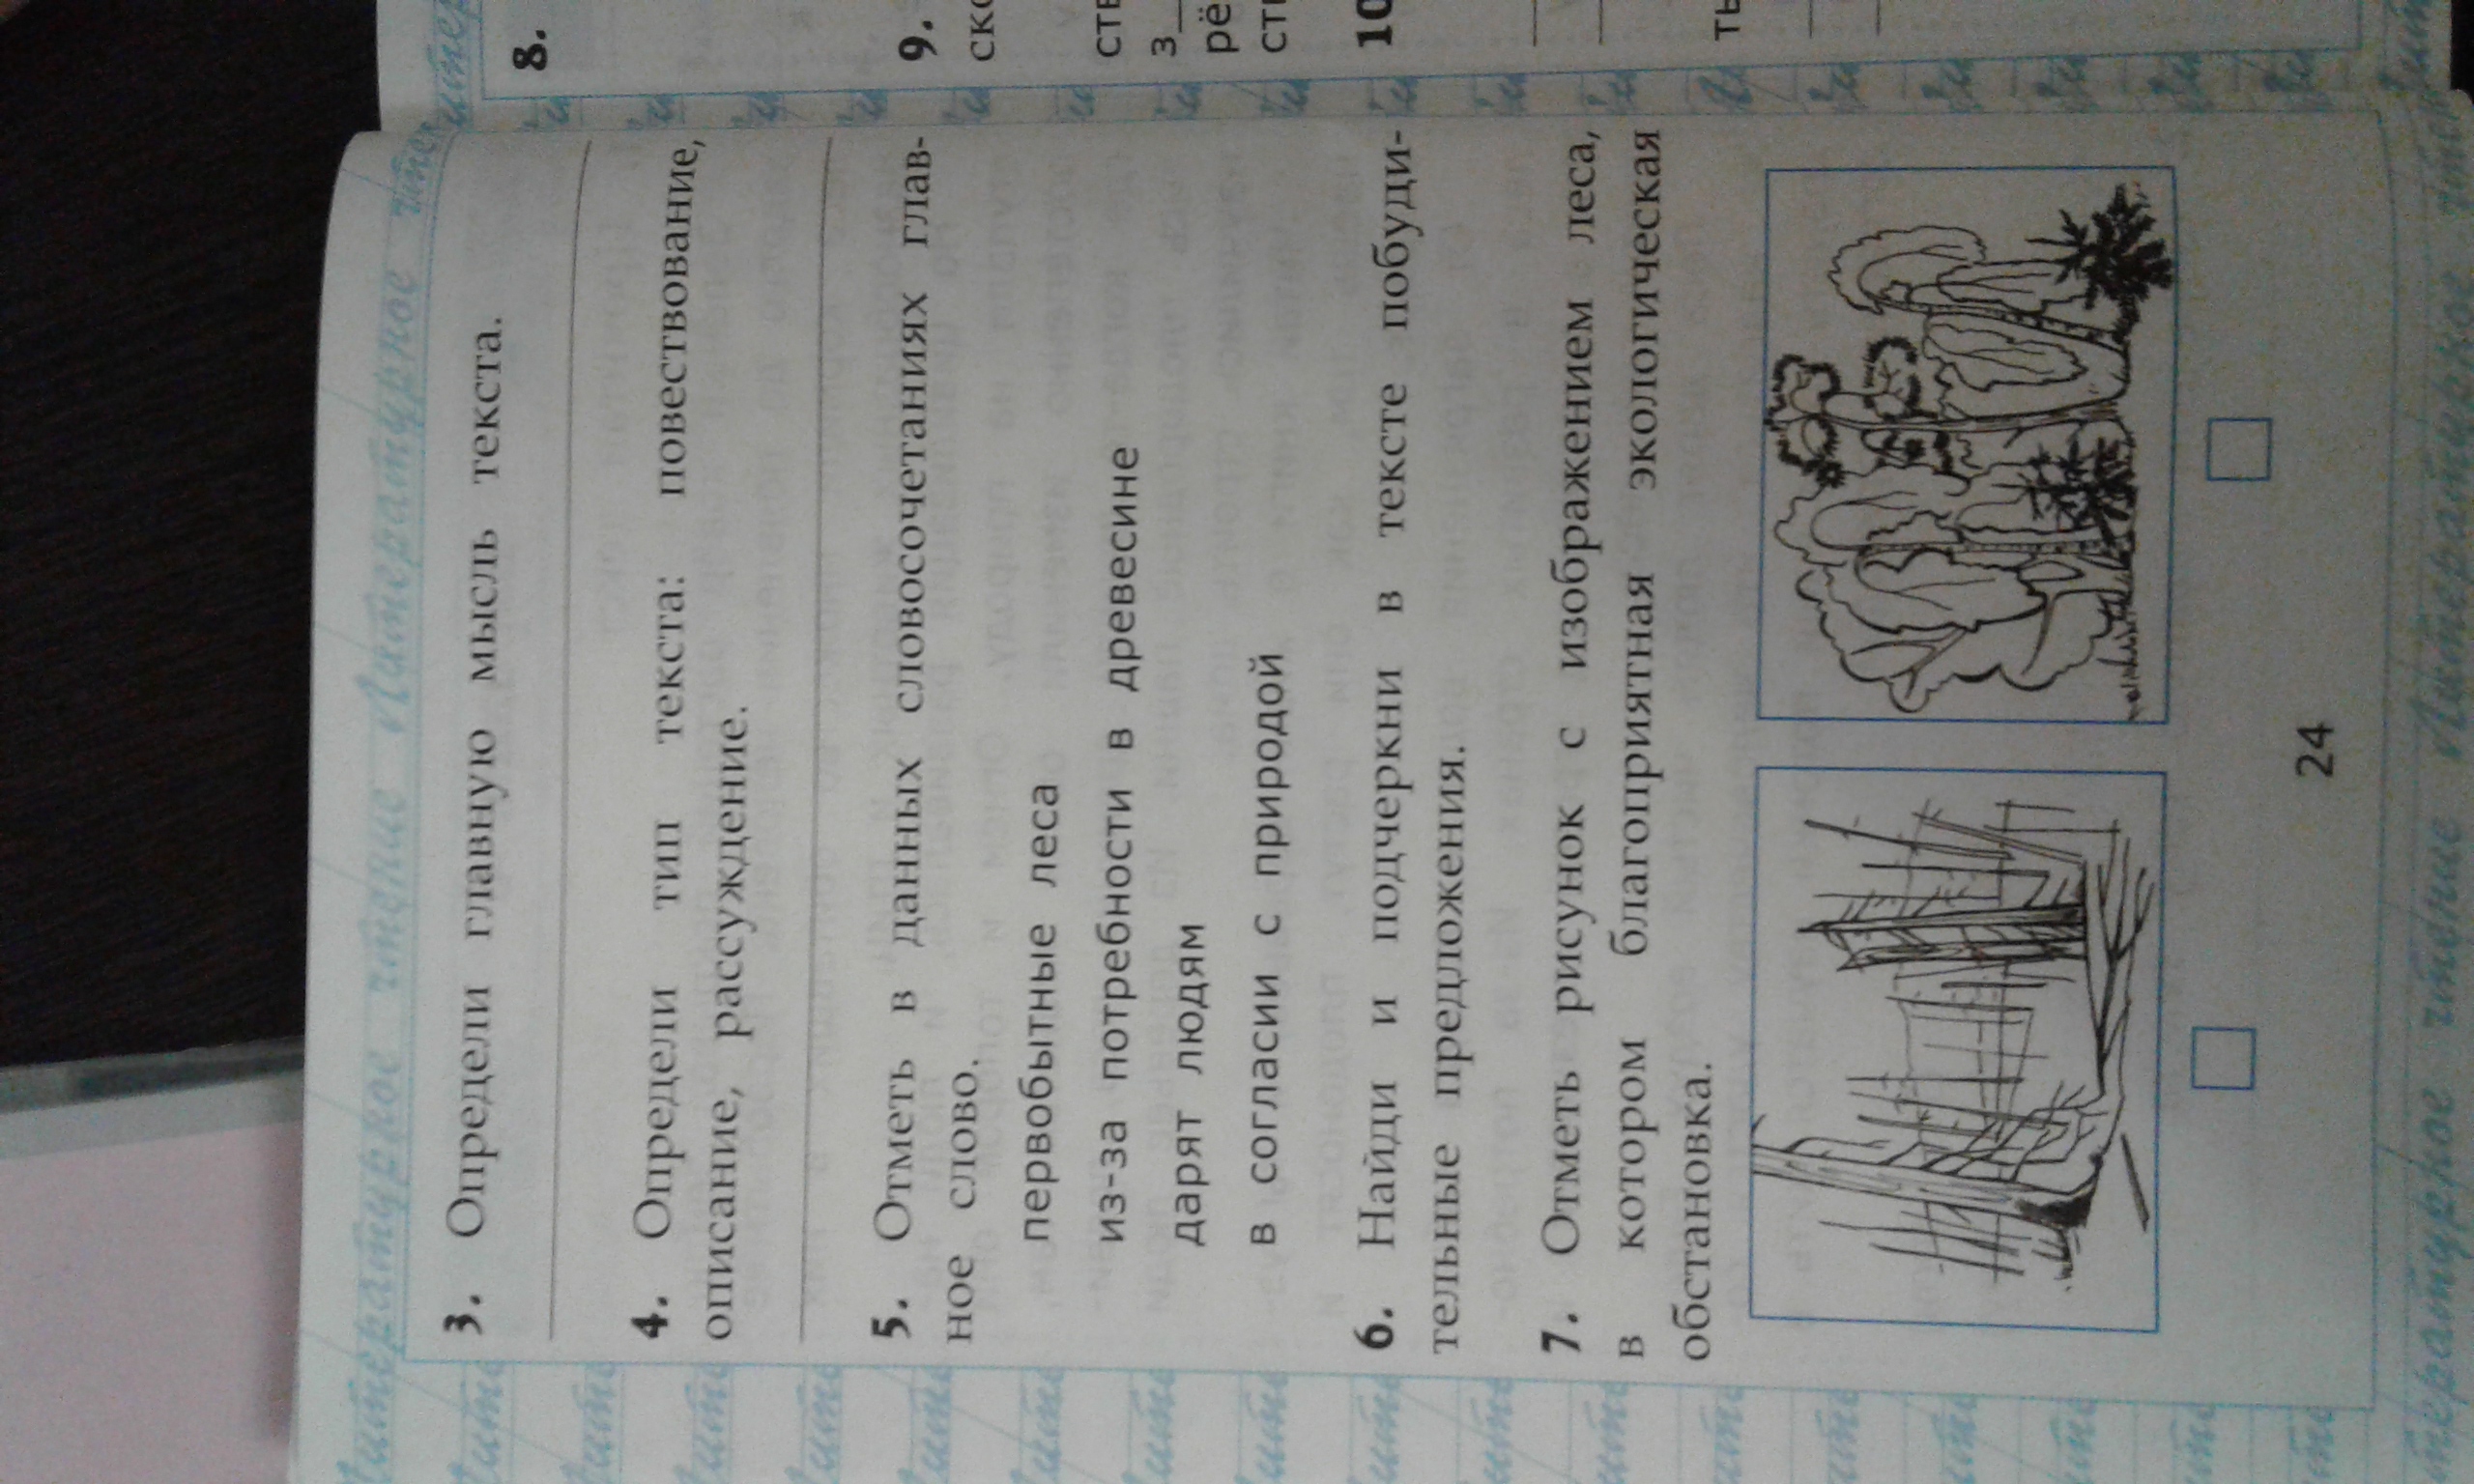 3. Определи главную мысль текста.
4. Определи тип текста: повествование,
описание, рассуждение.
5. Отметь в данных словосочетаниях глав-
ное слово.
первобытные леса
из-за потребности в древесине
дарят людям
в согласии с природой
6. Найди и подчеркни в тексте побуди-
тельные предложения.
7. Отметь рисунок с изображением леса,
в котором благоприятная экологическая
обстановка.
24
8.
9.
10